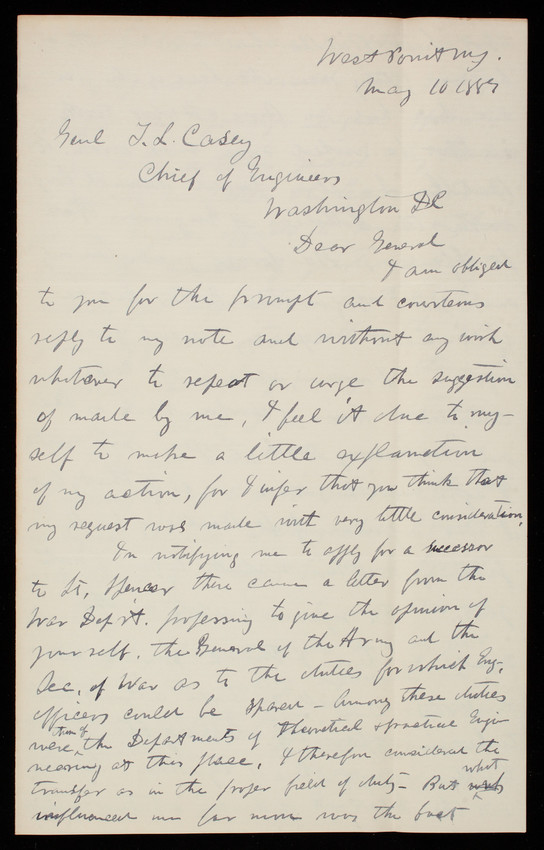 West Point NY.
May 10 1889
Genl T. L. Casey
Chief of Engineers
Washington DC
Dear General
I am obliged
to you for the prompt and courteous
reply to my note and without any wish
whatever to repeat or urge the suggestion
of made by me, I feel it due to my-
self to make a little explanation
of my action, for I infer that you think that
my request was made with very little consideration.
In notifying me to apply for a successor
to Lt. Spencer there came a letter from the
War Dept. professing to give the opinion of
yourself, the General of the Army and the
Sec. of War as to the duties for which Eng.
officers could be spared - Among these duties
were those of the Departments of theoretical & practical Engi-
neering at this place, I therefore considered the
transfer as in the proper field of duty - But what
influenced me far more was the fact